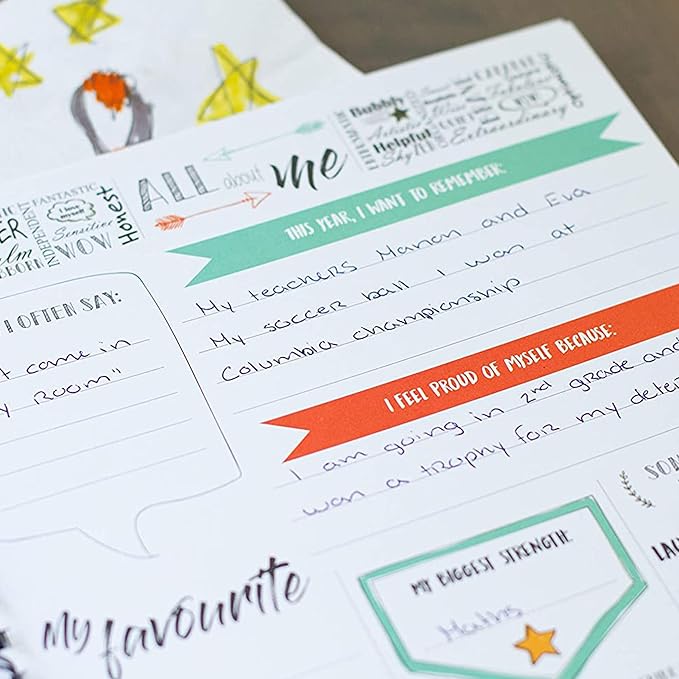 ALL about me
Bubbly
Artistic
Helpful
Shy
Extraordinary
FANTASTIC
INDEPENDENT
I love myself
Sensitive
WOW
Honest
THIS YEAR, I WANT TO REMEMBER:
My teachers Manon and Eva
My soccer ball I won at
Columbia championship
I OFTEN SAY:
come in
ROOM"
I FEEL PROUD OF MYSELF BECAUSE:
I am going in 2nd grade and
won a trophy for my deter
MY BIGGEST STRENGTH:
Maths
my favourite